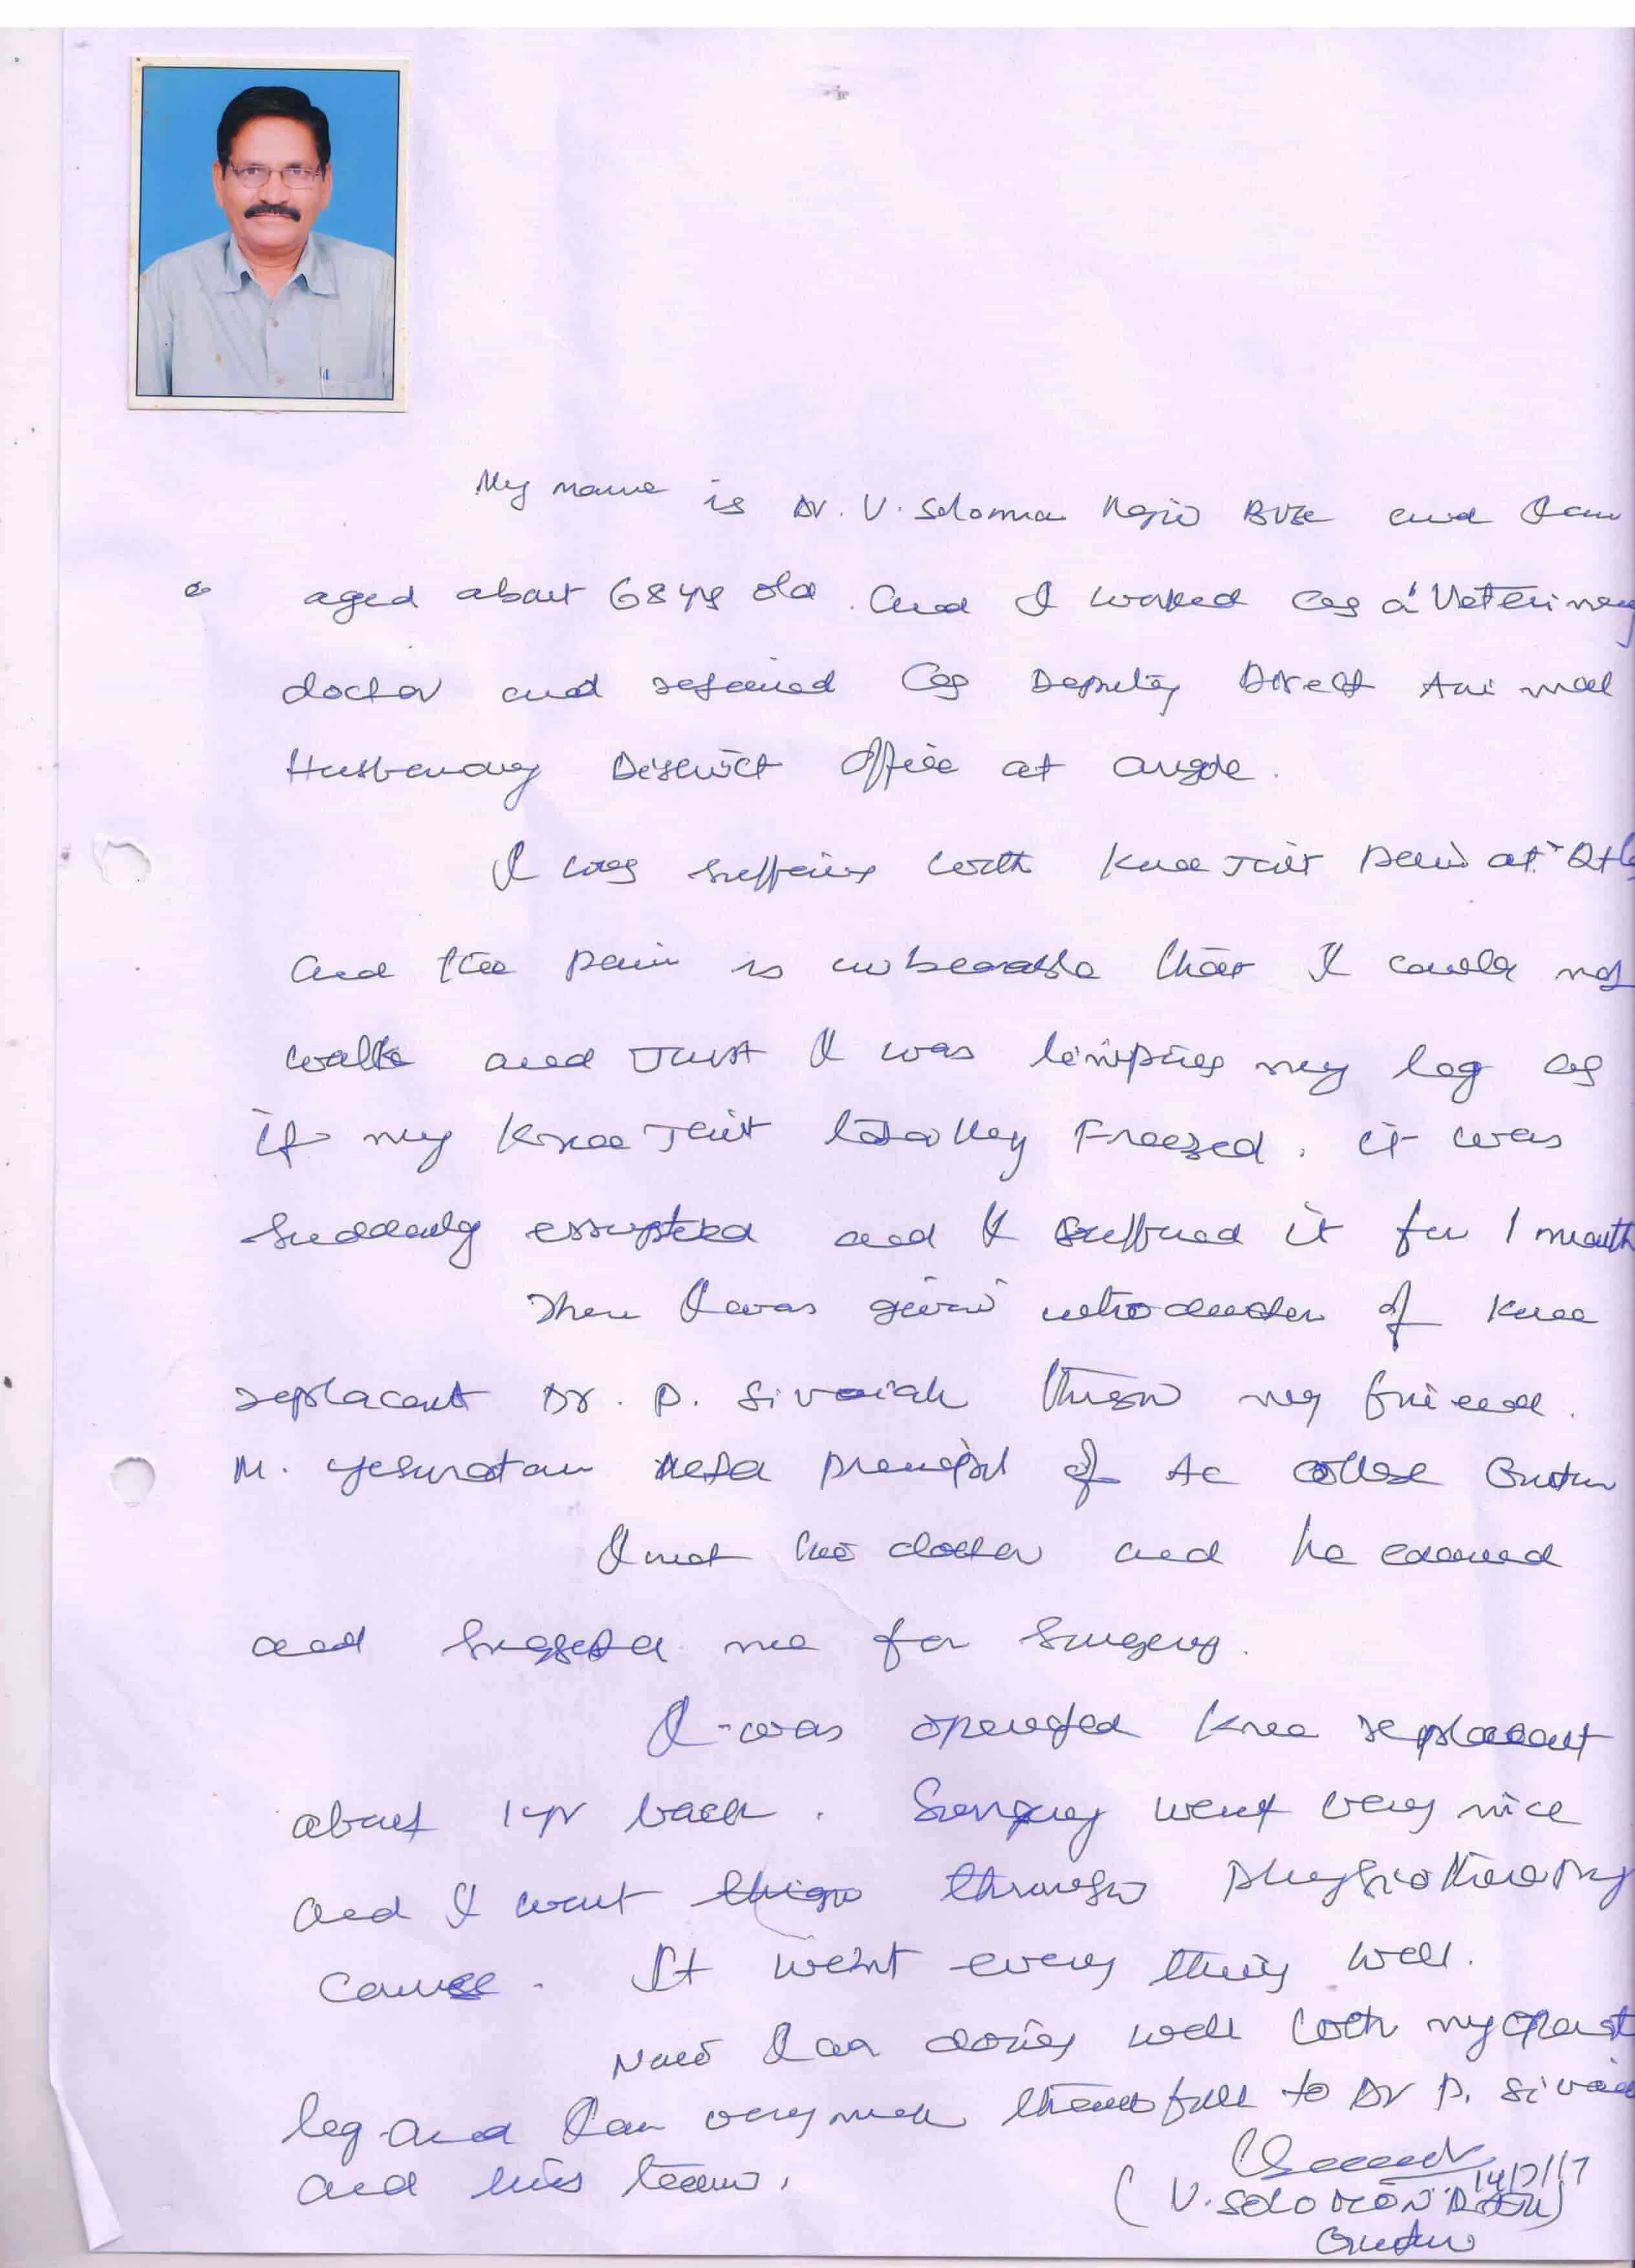 My name is Dr. V. Solomon and I am
aged about 68 yrs old. And I worked as a Veterinary
doctor and retired as Deputy Direct Animal
Husbandry District Office at ongole.
I was suffering with knee joint pain at
and the pain is unbearable that I could not
walk and Just I was limping my leg as
if my knee joint totally Freezed. it was
suddenly and I suffered it for 1 month
Then I was given introduction of knee
replacent Dr. P. Sivaiah my friend.
M. Yesuratnam of AC college Guntur
I met the doctor and he
and me for Surgery.
I was operated knee replacent
about 1 yr back. Surgery went very nice
and I went through physiotherapy
course. It went every thing well.
Now I am doing well with my
leg and I am very much thankfull to Dr P. Sivaia
and his team.
14/7/17
(V. SOLOMON RAJU)
Guntur